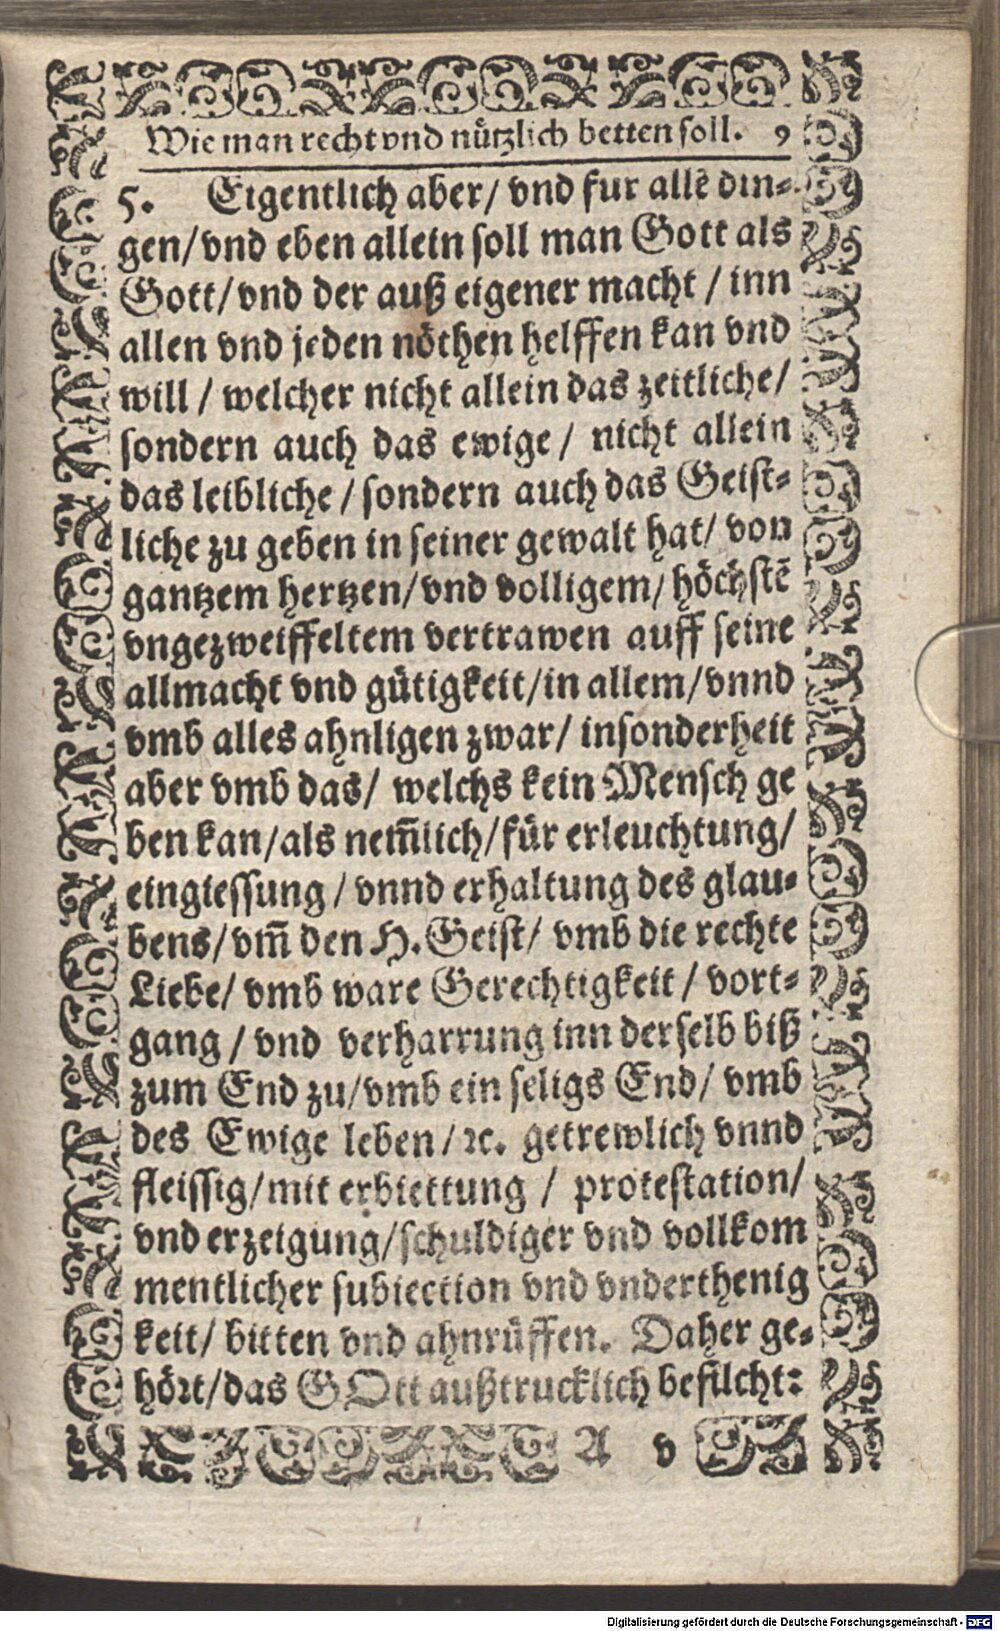 Wie man recht vnd nützlich betten soll. 9
5. Eigentlich aber/ vnd fur allẽ din-
gen/ vnd eben allein soll man Gott als
Gott/ vnd der auß eigener macht / inn
allen vnd jeden nöthen helffen kan vnd
will / welcher nicht allein das zeitliche/
sondern auch das ewige / nicht allein
das leibliche / sondern auch das Geist-
liche zu geben in seiner gewalt hat/ von
gantzem hertzen/ vnd volligem/ höchstẽ
vngezweiffeltem vertrawen auff seine
allmacht vnd gütigkeit/ in allem/ vnnd
vmb alles ahnligen zwar/ insonderheit
aber vmb das/ welchs kein Mensch ge
ben kan/ als nem̃lich/ für erleuchtung/
eingiessung / vnnd erhaltung des glau-
bens/ vm̃ den H. Geist/ vmb die rechte
Liebe/ vmb ware Gerechtigkeit / vort-
gang / vnd verharrung inn derselb biß
zum End zu/ vmb ein seligs End/ vmb
des Ewige leben/ ꝛc. getrewlich vnnd
fleissig/ mit erbiettung / protestation/
vnd erzeigung/ schuldiger vnd vollkom
mentlicher subiection vnd vnderthenig
keit/ bitten vnd ahnrüffen. Daher ge-
hört/ das GOtt außtrucklich befilcht:
A v
Digitalisierung gefördert durch die Deutsche Forschungsgemeinschaft - DFG